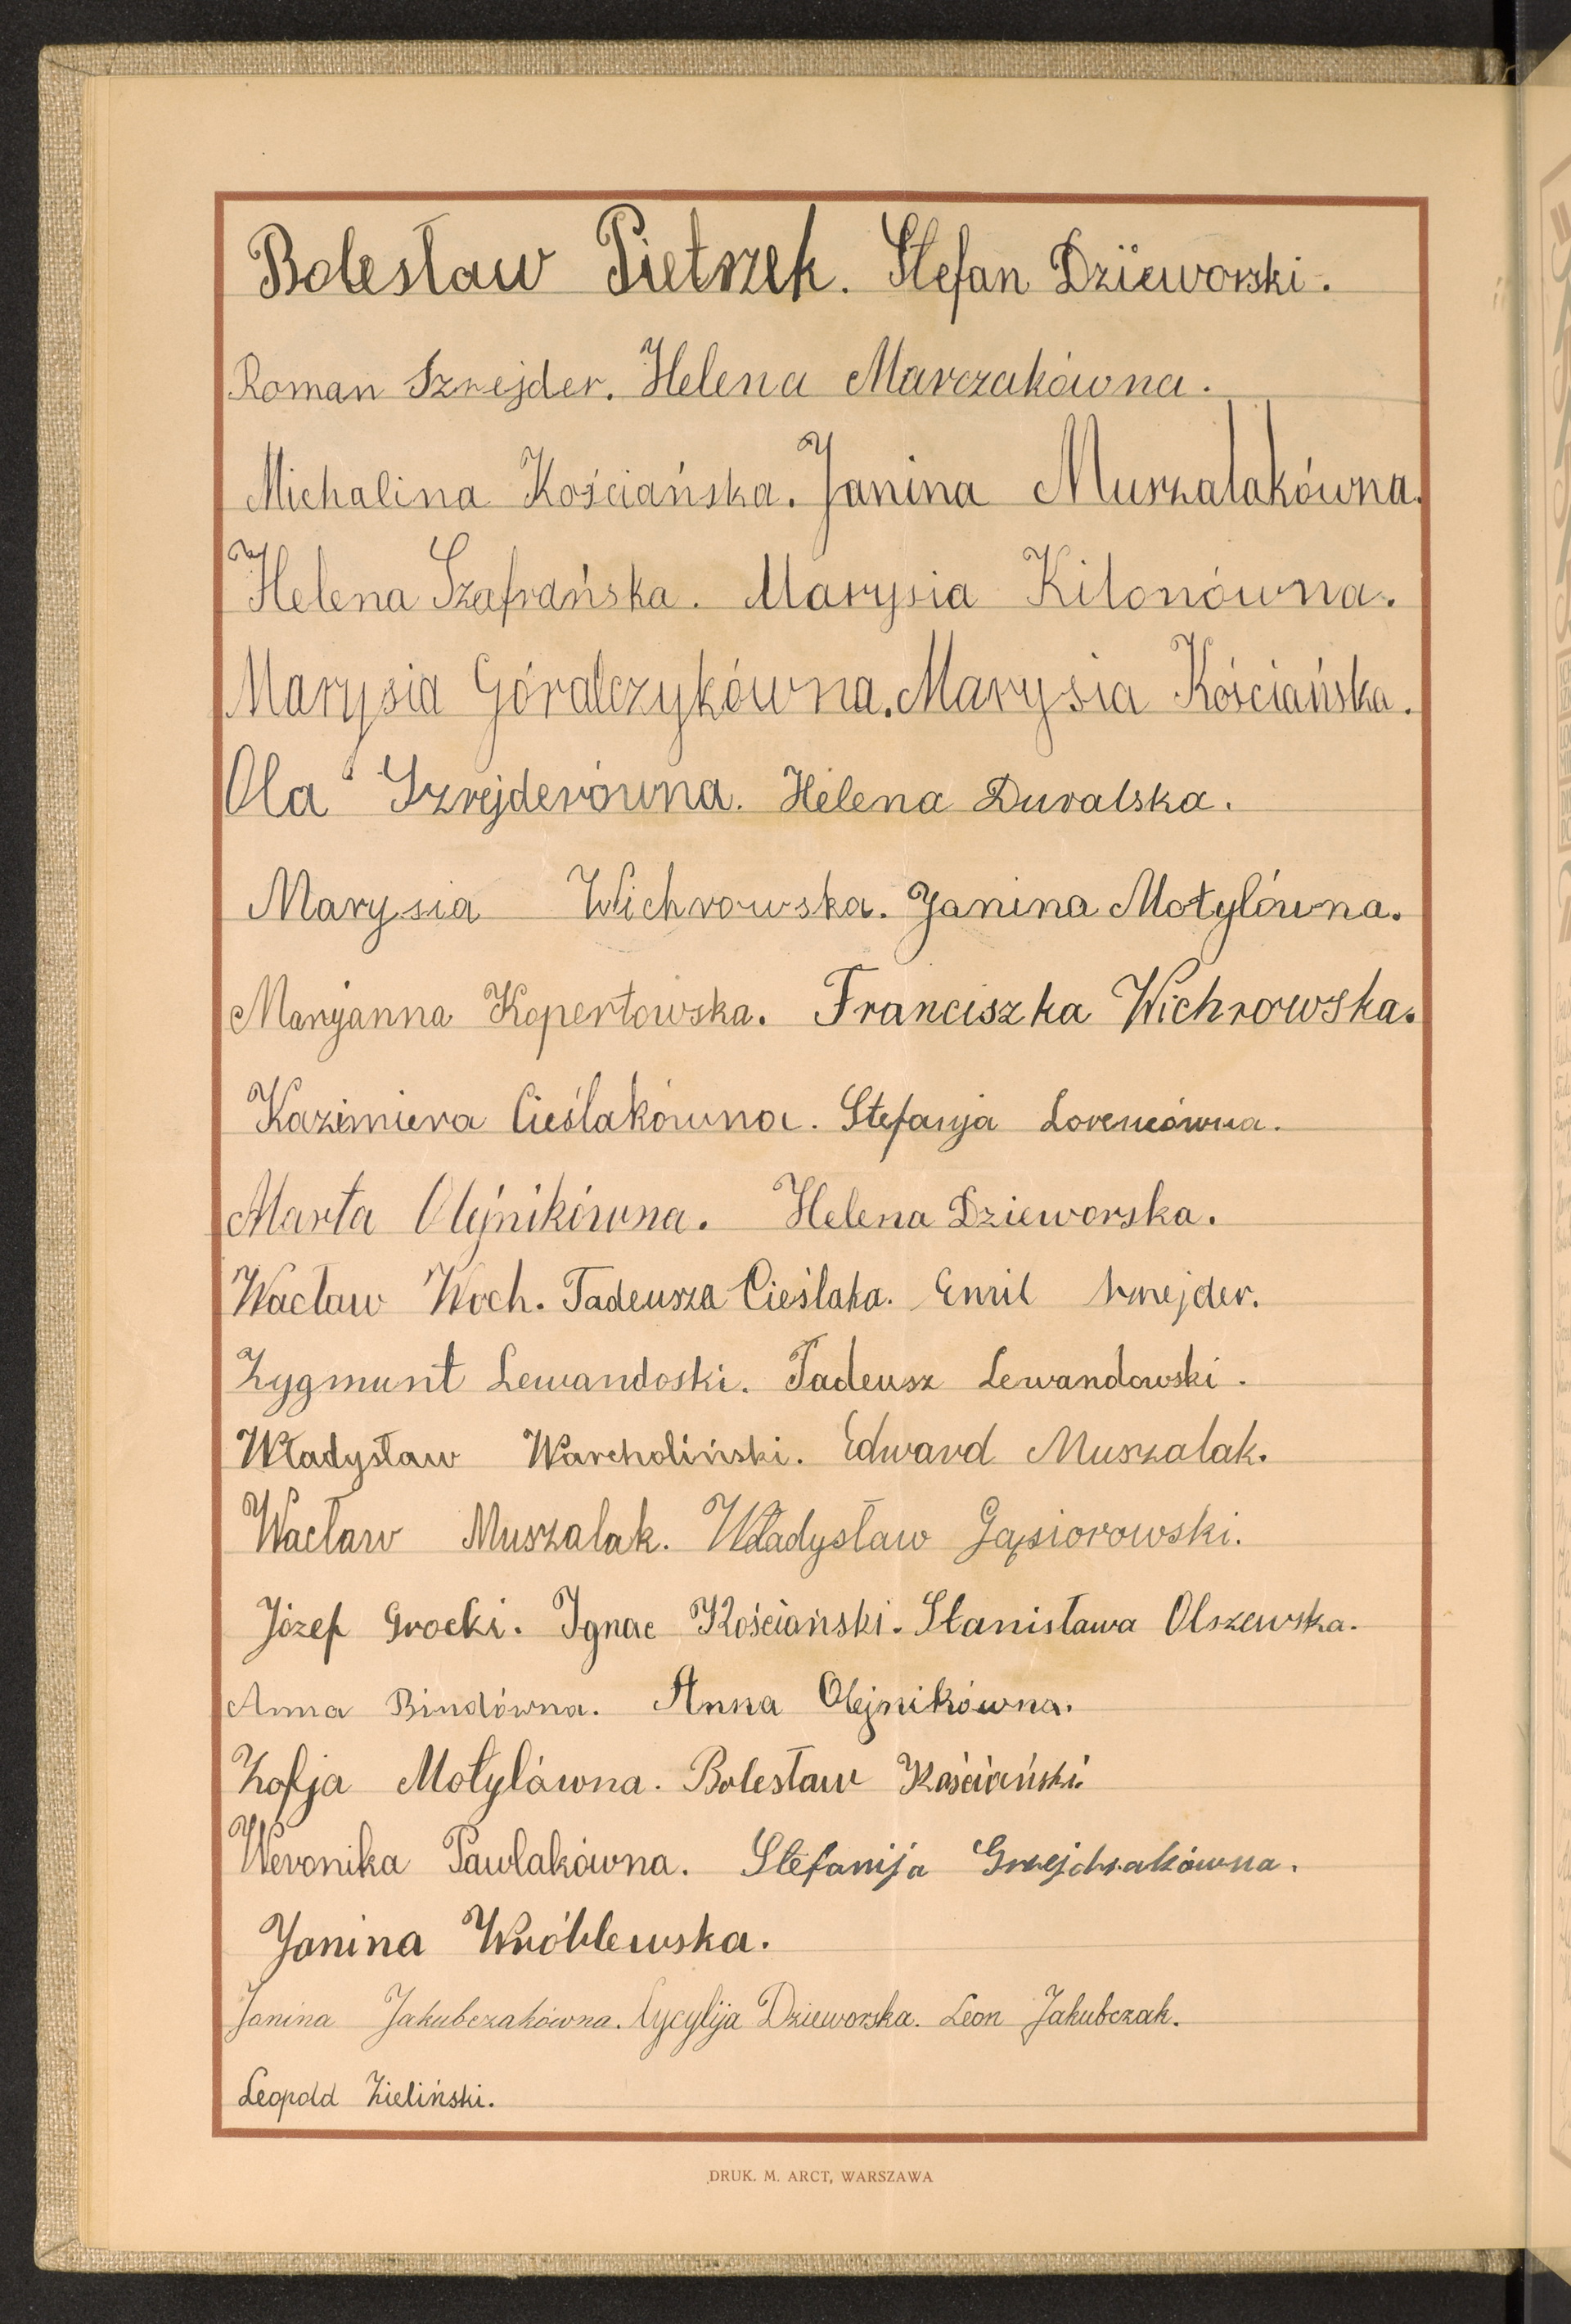 Bolesław Pietrzek. Stefan Dzieworski.
Roman Szrejder. Helena Marczakówna.
Michalina Kościańska. Janina Muszalakówna.
Helena Szafrańska. Marysia Kilonówna.
Marysia Góralczykówna. Marysia Kościańska.
Ola Szrejderówna. Helena Duralska.
Marysia Wichrowska. Janina Motylówna.
Maryanna Kopertowska. Franciszka Wichrowska.
Kazimiera Cieślakówna. Stefanja Lorencówna.
Marta Olejnikówna. Helena Dzieworska.
Wacław Woch. Tadeusza Cieślaka. Emil Szrejder.
Zygmunt Lewandoski. Tadeusz Lewandowski.
Władysław Warcholiński. Edward Muszalak.
Wacław Muszalak. Władysław Gąsiorowski.
Józef Grocki. Ignac Kościański. Stanisława Olszewska.
Anna Bindówna. Anna Olejnikówna.
Zofja Motylówna. Bolesław Kościański
Weronika Pawlakówna. Stefanija
Janina Wróblewska.
Janina Jakubczakówna. Cycylija Dzieworska. Leon Jakubczak.
Leopold Zieliński.
DRUK. M. ARCT, WARSZAWA